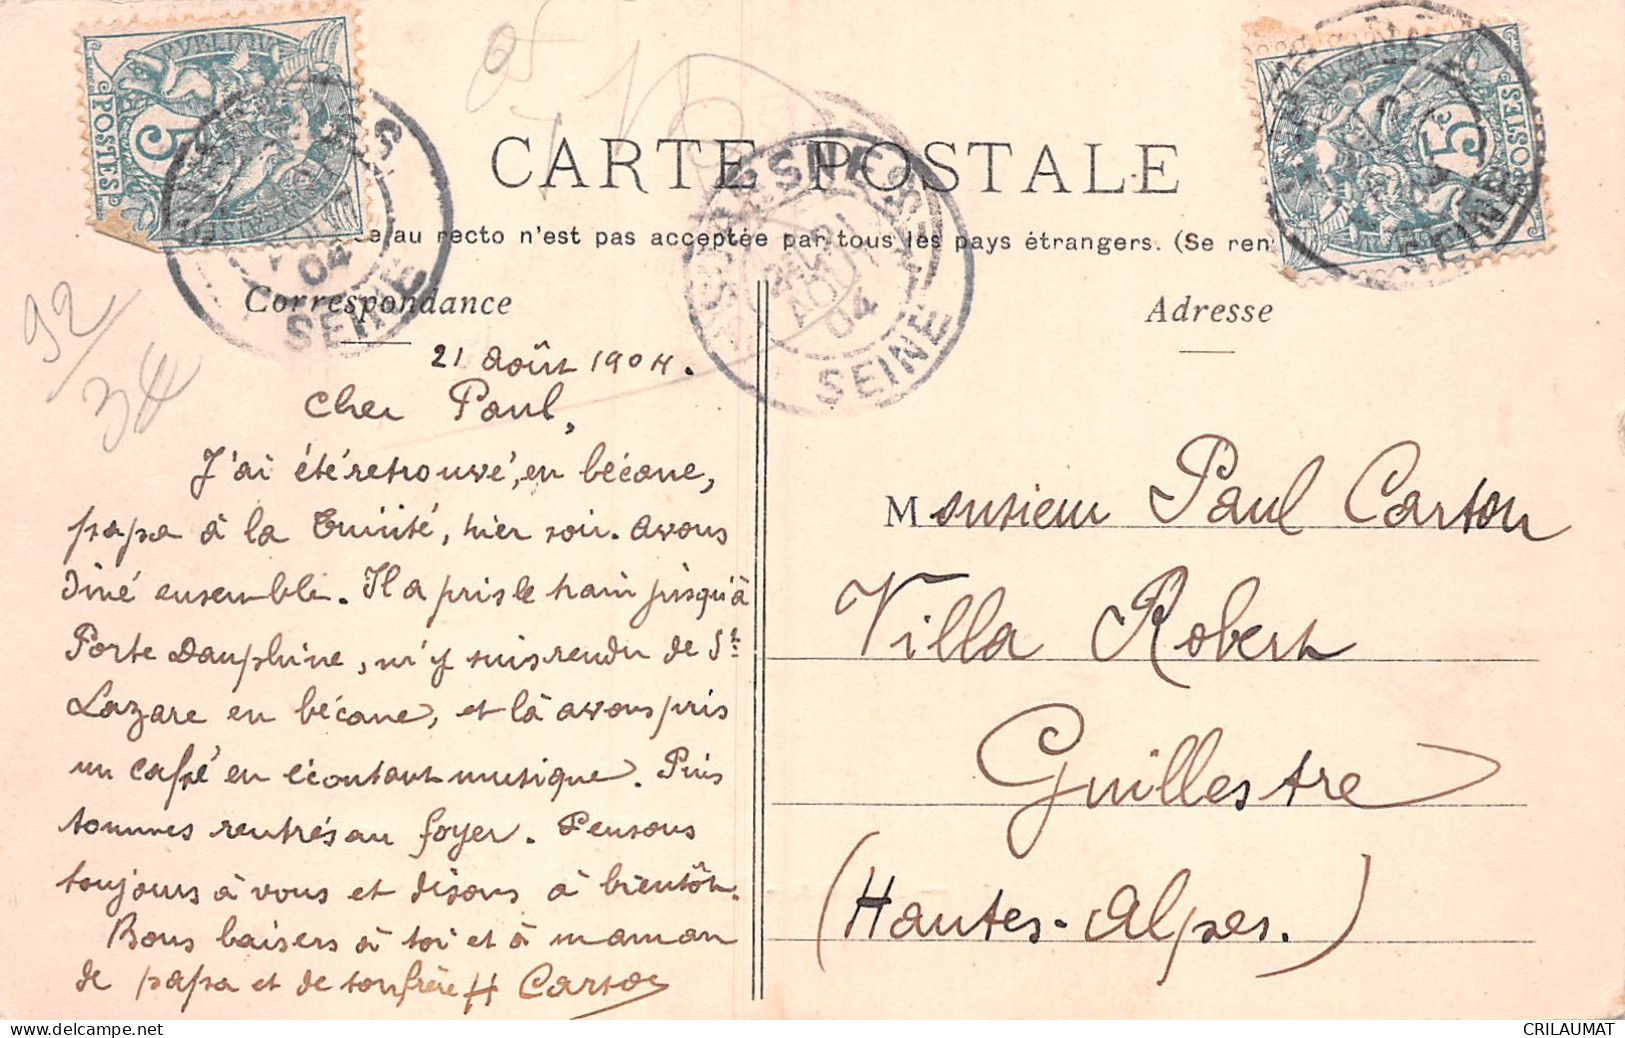 CARTE POSTALE
e au recto n'est pas acceptée par tous les pays étrangers. (Se ren
Correspondance
Adresse
RÉPUBLIQUE
POSTES
5
5c
POSTES
SEINE
04
ASNIERES
AOUT
04
SEINE
SEINE
92
3€
21 Août 1904.
Cher Paul,
J'ai été retrouvé, en bécane,
papa à la Trinité, hier soir. Avons
diné ensemble. Il a pris le train jusqu'à
Porte Dauphine, m'y suis rendu de St
Lazare en bécane, et là avons pris
un café en écoutant musique. Puis
sommes rentrés au foyer. Pensons
toujours à vous et disons à bientôt.
Bons baisers à toi et à maman
de papa et de ton frère H Carton
Monsieur Paul Carton
Villa Robert
Guillestre
(Hautes-Alpes.)
delcampe.net
CRILAUMAT